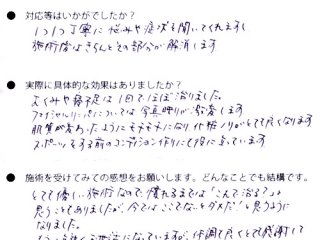 ● 対応等はいかがでしたか?
1つ1つ丁寧に悩みや症状を聞いてくれますし
施術後はきちんとその部分が解消します
● 実際に具体的な効果はありましたか?
むくみや寝不足は1回でほぼ治りました。
フェイシャルリンパについては写真映りが激変します
肌質が変わったようにモチモチになり化粧ノリがとても良くなります
スポーツする前のコンディション作りにも役に立っています
● 施術を受けてみての感想をお願いします。どんなことでも結構です。
とても優しい施術なので慣れるまでは「これで治る?」と
思うこともありましたが、今では「ここでないとダメだ!」と思うように
なりました。
お世話になっていますが、体調も良くとても感謝して